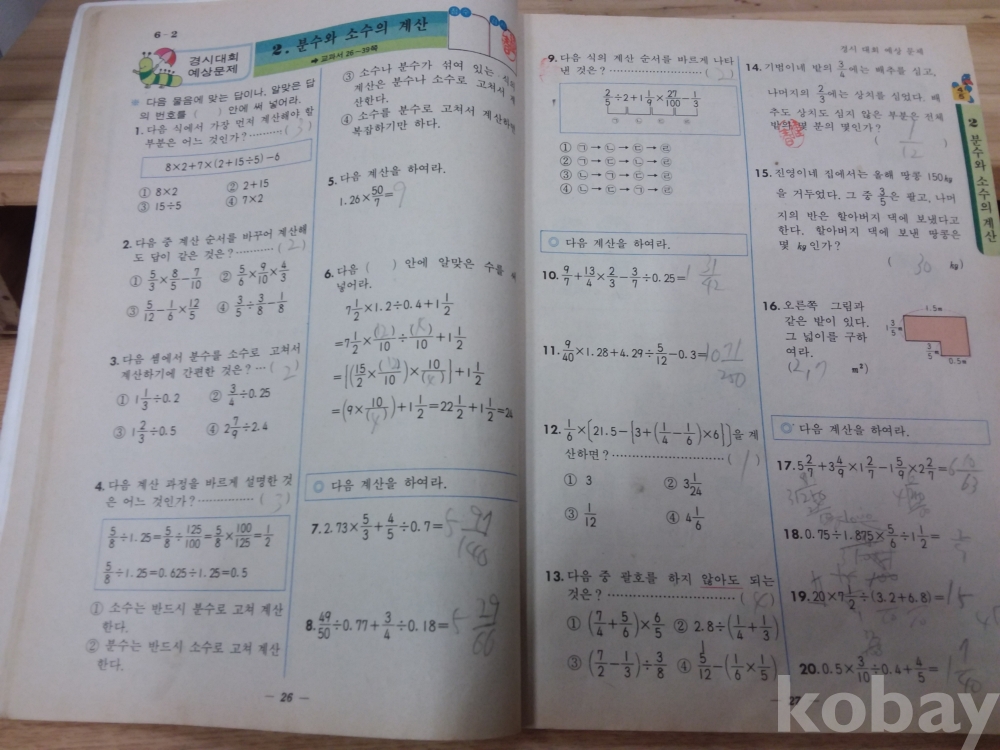 6-2
경시대회
예상문제
2. 분수와 소수의 계산
➡ 교과서 26~39쪽
※ 다음 물음에 맞는 답이나, 알맞은 답
의 번호를 ( ) 안에 써 넣어라.
1. 다음 식에서 가장 먼저 계산해야 할
부분은 어느 것인가? ………… ( 3 )
8×2+7×(2+15÷5)-6
① 8×2 ② 2+15
③ 15÷5 ④ 7×2
2. 다음 중 계산 순서를 바꾸어 계산해
도 답이 같은 것은? ………… ( 2 )
① 5/3×8/5-7/10 ② 5/6×9/10×4/3
③ 5/12-1/6×12/5 ④ 3/5÷3/8-1/8
3. 다음 셈에서 분수를 소수로 고쳐서
계산하기에 간편한 것은? … ( 2 )
① 1 1/3÷0.2 ② 3/4÷0.25
③ 1 2/3÷0.5 ④ 2 7/9÷2.4
4. 다음 계산 과정을 바르게 설명한 것
은 어느 것인가? …………… ( 3 )
5/8÷1.25=5/8÷125/100=5/8×100/125=1/2
5/8÷1.25=0.625÷1.25=0.5
① 소수는 반드시 분수로 고쳐 계산
한다.
② 분수는 반드시 소수로 고쳐 계산
한다.
③ 소수나 분수가 섞여 있는 식의
계산은 분수나 소수로 고쳐서 계
산한다.
④ 소수를 분수로 고쳐서 계산하면
복잡하기만 하다.
5. 다음 계산을 하여라.
1.26×50/7=9
6. 다음 ( ) 안에 알맞은 수를 써
넣어라.
7 1/2×1.2÷0.4+1 1/2
=7 1/2×(12)/10÷(4)/10+1 1/2
=[(15/2×(12)/10)×10/(4)]+1 1/2
=(9×10/(4))+1 1/2=22 1/2+1 1/2=24
◎ 다음 계산을 하여라.
7. 2.73×5/3+4/5÷0.7=5 97/140
8. 49/50÷0.77+3/4÷0.18=5 29/66
- 26 -
경시 대회 예상 문제
9. 다음 식의 계산 순서를 바르게 나타
낸 것은? …………………… ( 2 )
2/5÷2+1 1/9×27/100-1/3
㉠ ㉡ ㉢ ㉣
① ㉠→㉡→㉢→㉣
② ㉠→㉢→㉡→㉣
◎ 다음 계산을 하여라.
10. 9/7+13/4×2/3-3/7÷0.25=1 31/42
11. 9/40×1.28+4.29÷5/12-0.3=10 71/250
12. 1/6×{21.5-[3+(1/4-1/6)×6]}을 계
산하면? …………………… ( 1 )
① 3 ② 3 1/24
③ 1/12 ④ 4 1/6
13. 다음 중 괄호를 하지 않아도 되는
것은? …………………… ( 4 )
① (7/4+5/6)×6/5 ② 2.8÷(1/4+1/3)
③ (7/2-1/3)÷3/8 ④ 5/12-(1/6×1/5)
14. 기범이네 밭의 3/4에는 배추를 심고,
나머지의 2/3에는 상치를 심었다. 배
추도 상치도 심지 않은 부분은 전체
밭의 몇 분의 몇인가?
( 1/12 )
15. 진영이네 집에서는 올해 땅콩 150kg
을 거두었다. 그 중 3/5은 팔고, 나머
지의 반은 할아버지 댁에 보냈다고
한다. 할아버지 댁에 보낸 땅콩은
몇 kg인가?
( 30 kg)
16. 오른쪽 그림과
같은 밭이 있다.
그 넓이를 구하
여라.
(2,7 m²)
1.5m
1 3/5m
3/5m
0.5m
◎ 다음 계산을 하여라.
17. 5 2/7+3 4/9×1 2/7-1 5/9×2 2/7=6 10/63
18. 0.75÷1.875×5/6÷1 1/2=
19. 20×7 1/2÷(3.2+6.8)=15
20. 0.5×3/10÷0.4+4/5=1 7/40
- 27 -
2 분수와 소수의 계산
kobay